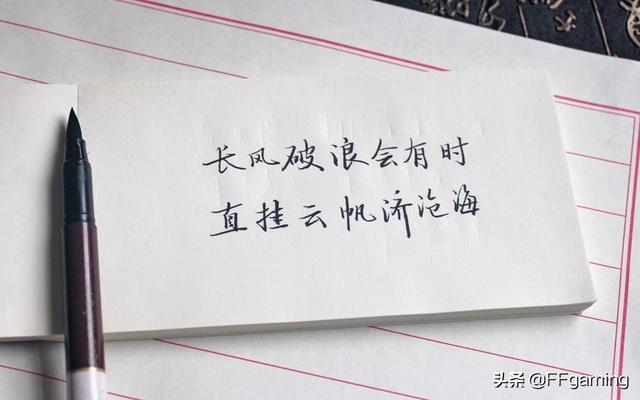 长风破浪会有时
直挂云帆济沧海
头条 @FFgaming